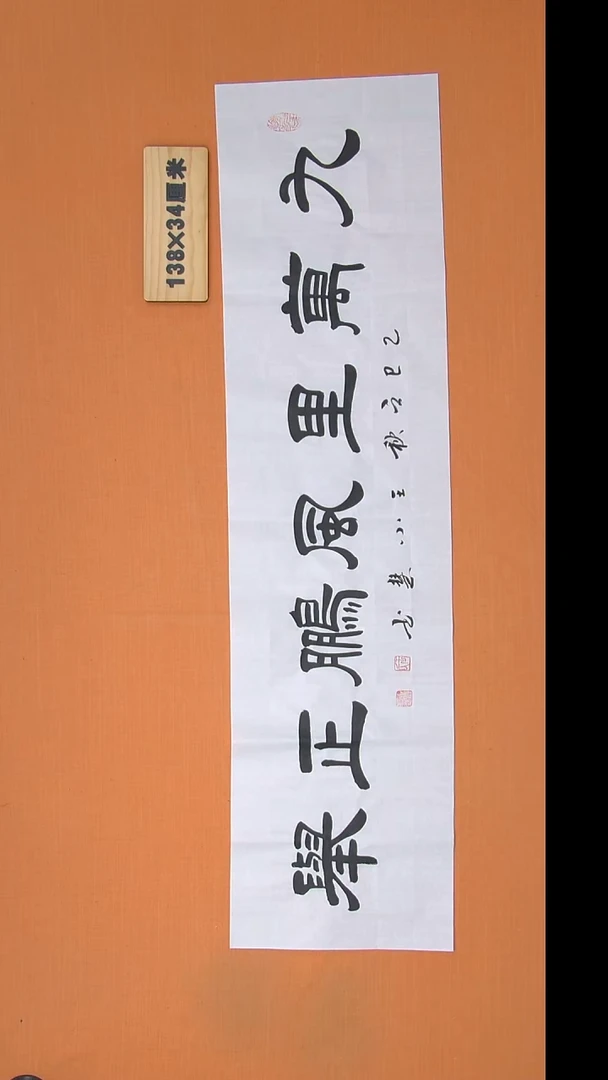 138×34厘米
九萬里風鵬正舉
乙巳秋王小慧书